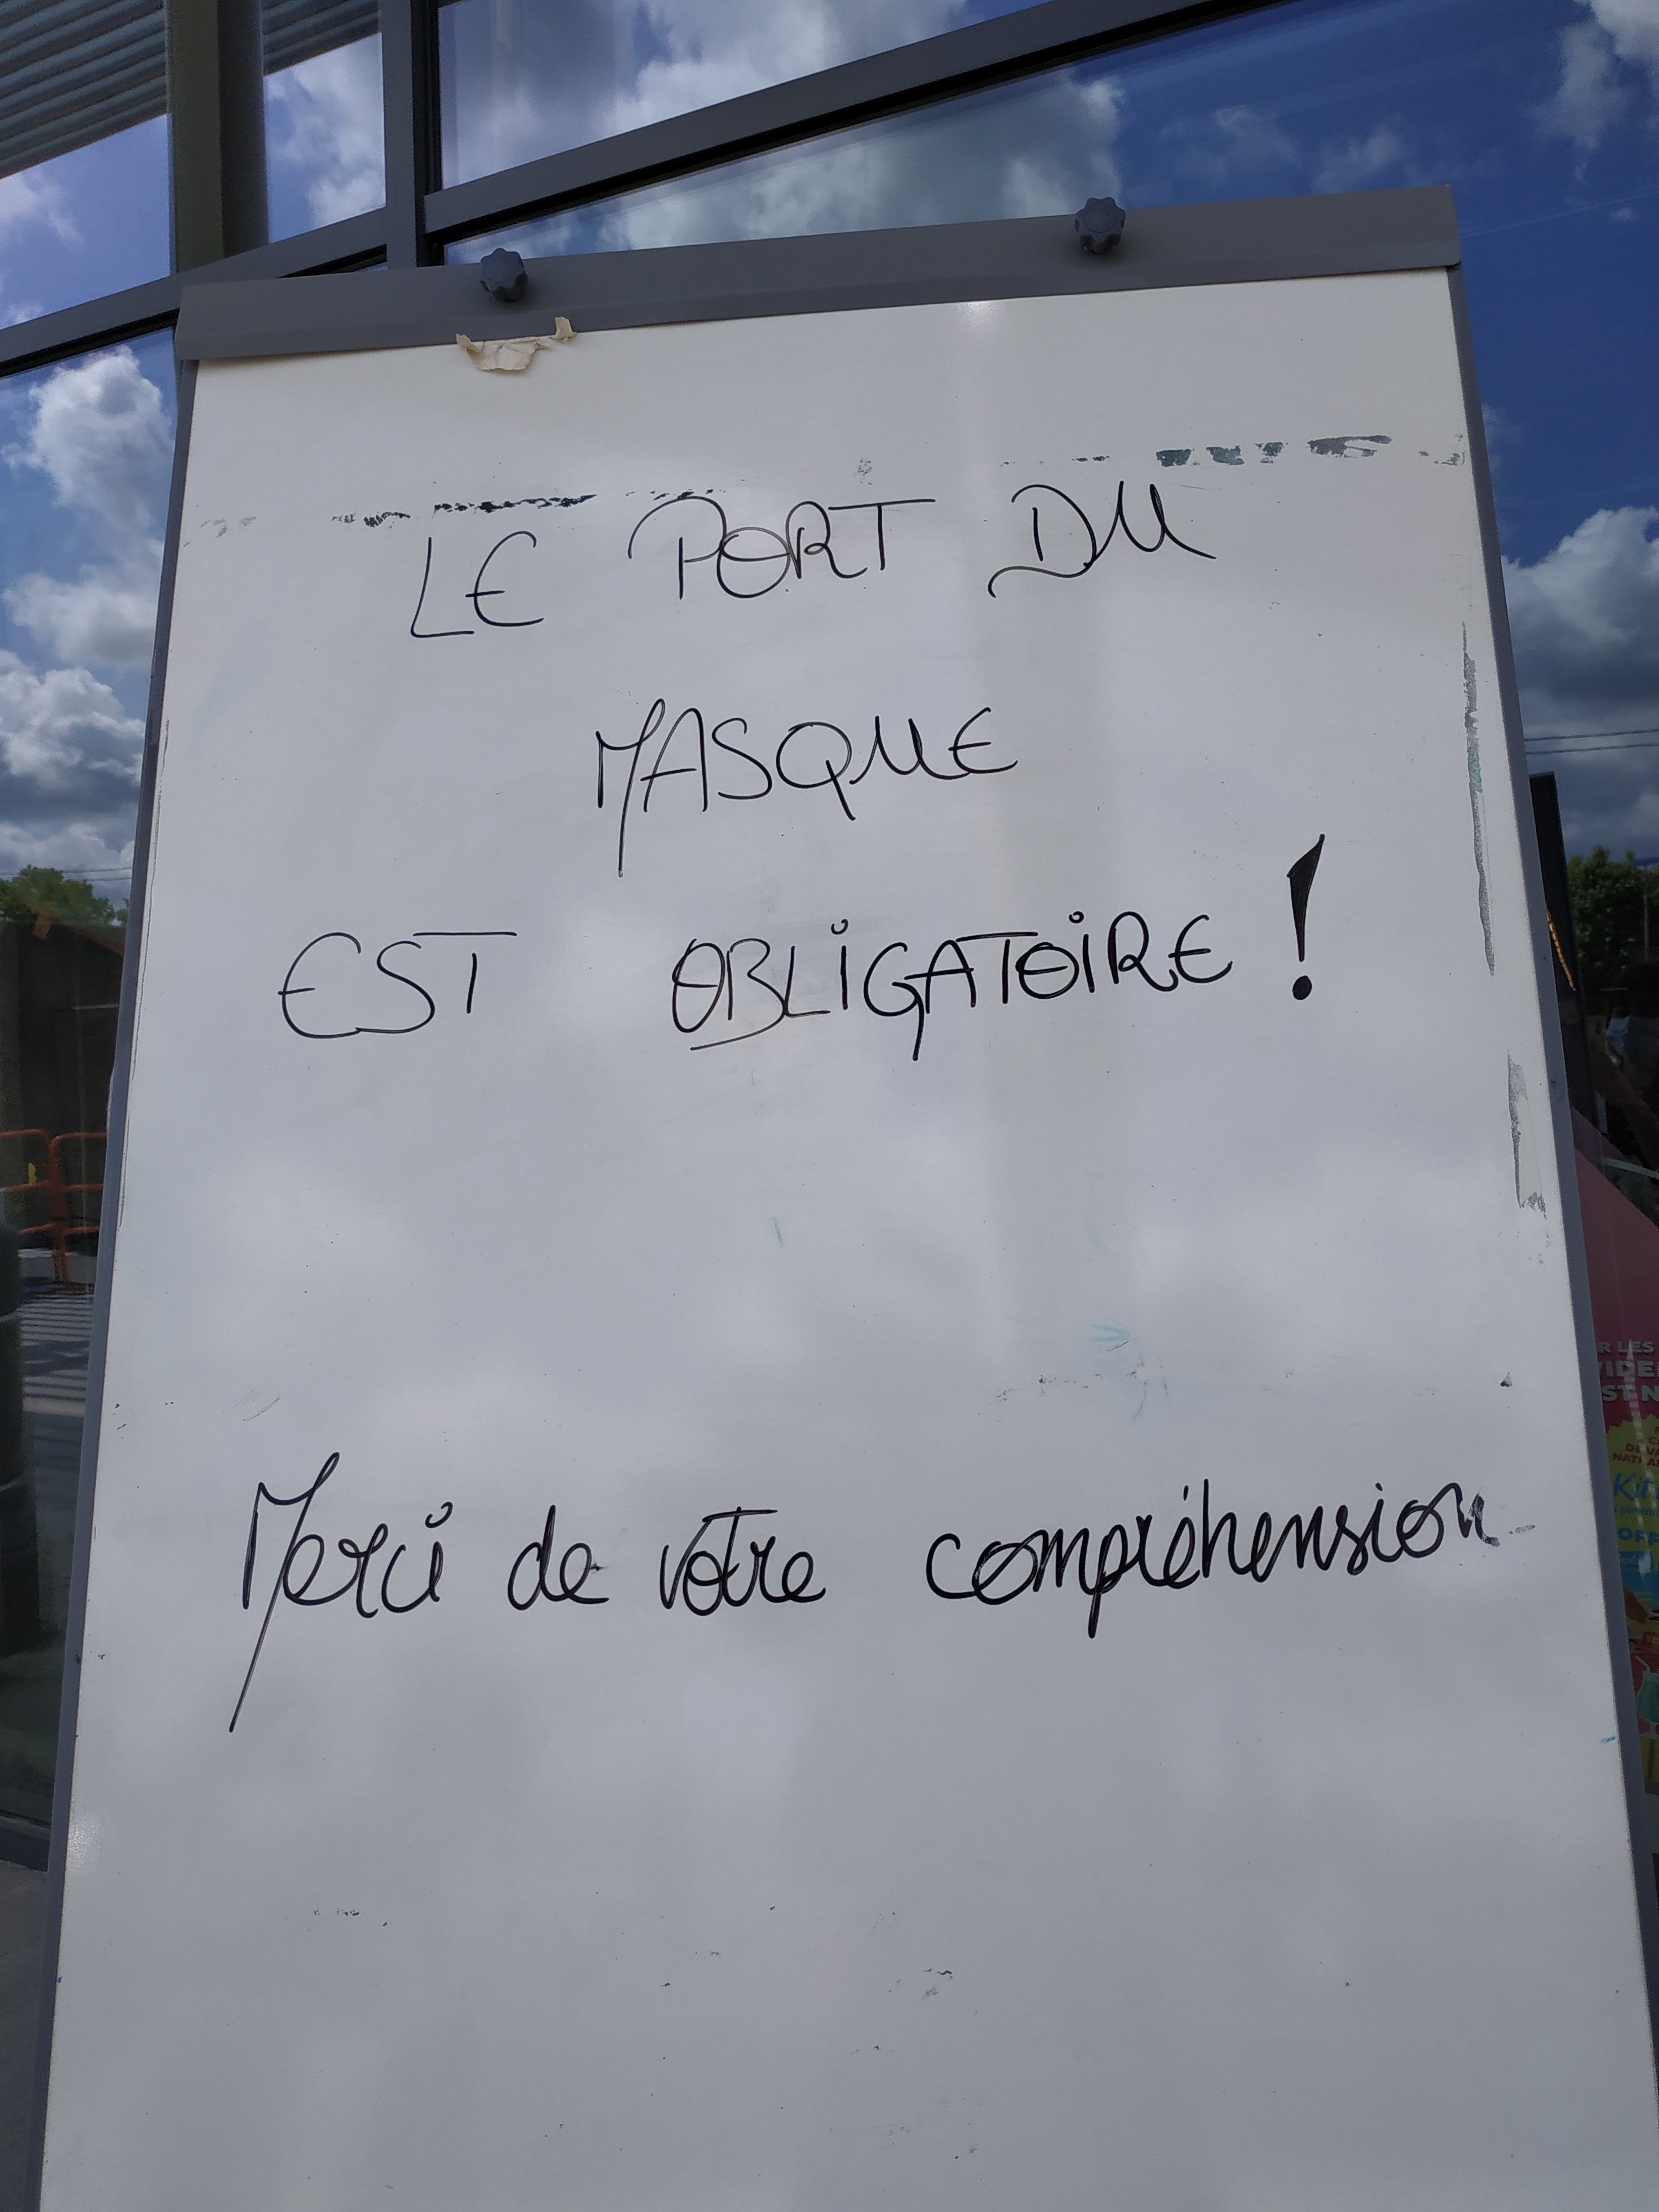 LE PORT DU
MASQUE
EST OBLIGATOIRE !
Merci de votre compréhension
R LES
ST N